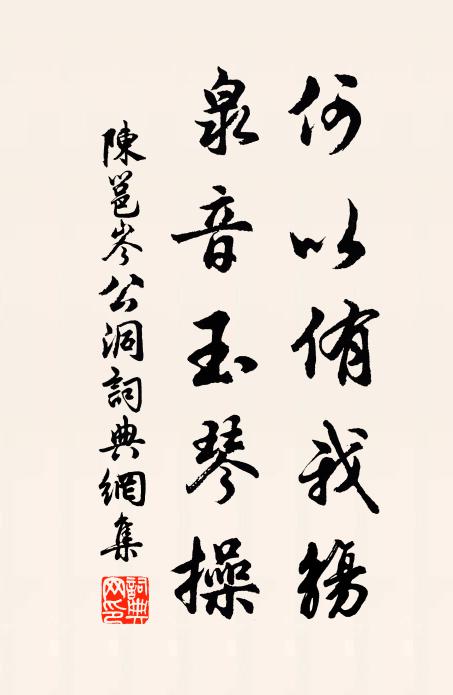 何以侑我觴
泉音玉琴操
陳邕岑公洞詞典網集
詞典
網印